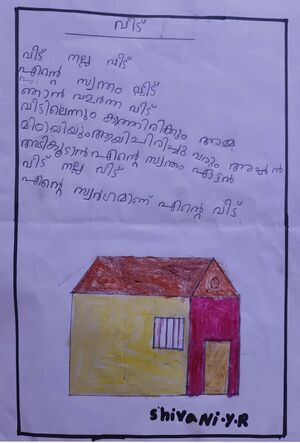 വീട്
വീട് നല്ല വീട്
എൻ്റെ സ്വന്തം വീട്
ഞാൻ വളർന്ന വീട്
വീട്ടിലെന്നും കാത്തിരിക്കും അമ്മ
മിഠായിയുംആയിചിരിച്ചു വരും അച്ഛൻ
അടികൂടാൻ എൻ്റെ സ്വന്തം ഏട്ടൻ
വീട് നല്ല വീട്
എൻ്റെ സ്വർഗമാണ് എൻ്റെ വീട്.
ShivaNi.Y.R